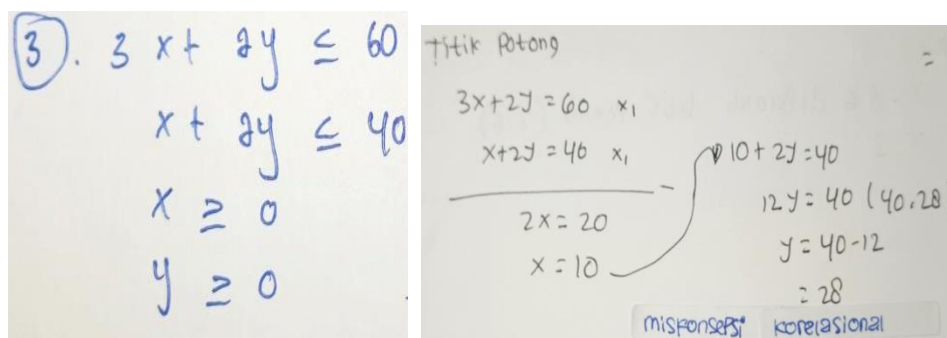 3. 3x + 2y ≤ 60
x + 2y ≤ 40
x ≥ 0
y ≥ 0
Titik Potong
=
3x+2y = 60 x1
x+2y = 40 x1
-
2x = 20
x = 10
10 + 2y = 40
12y = 40 (40.28
y = 40-12
= 28
misKonsePsi Korelasional